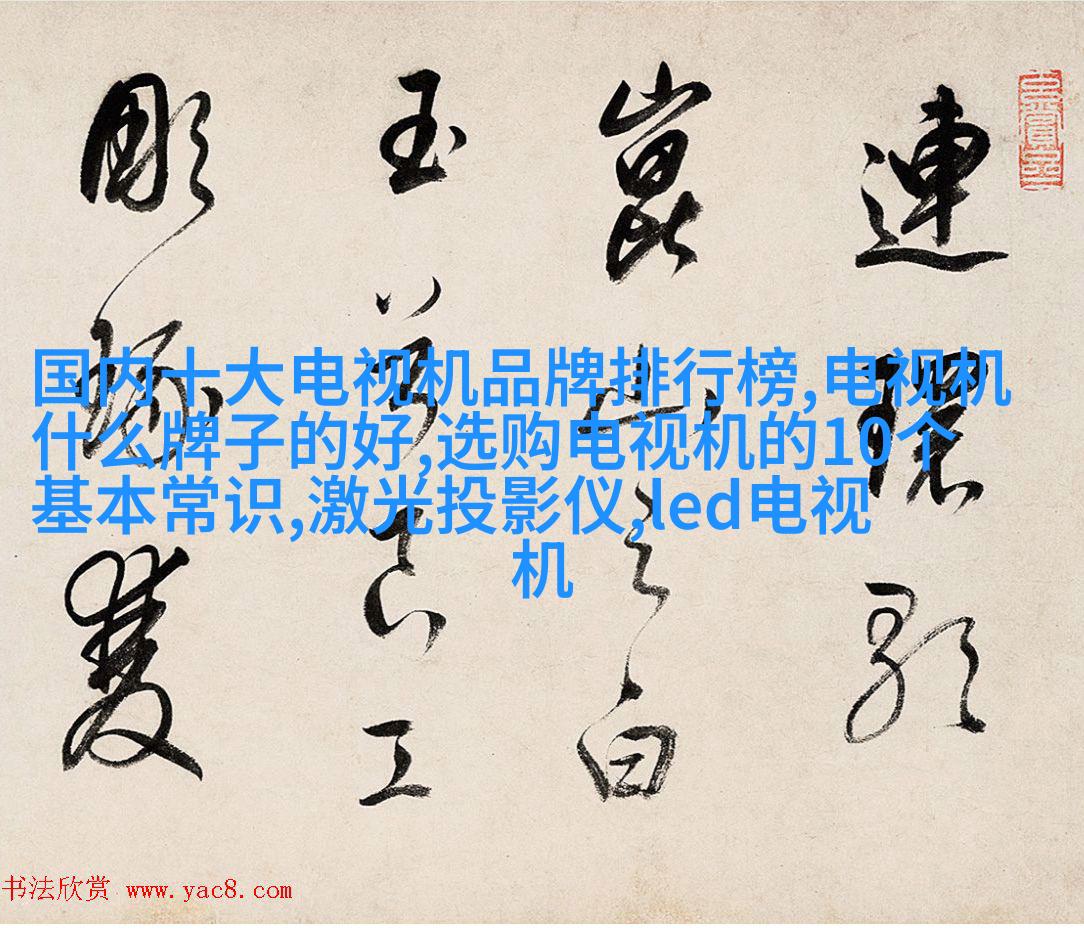 連環歌
崑山之白
玉兮良工
彫琢雙
国内十大电视机品牌排行榜,电视机
什么牌子的好,选购电视机的10个
基本常识,激光投影仪,led电视
机
书法欣赏 www.yac8.com